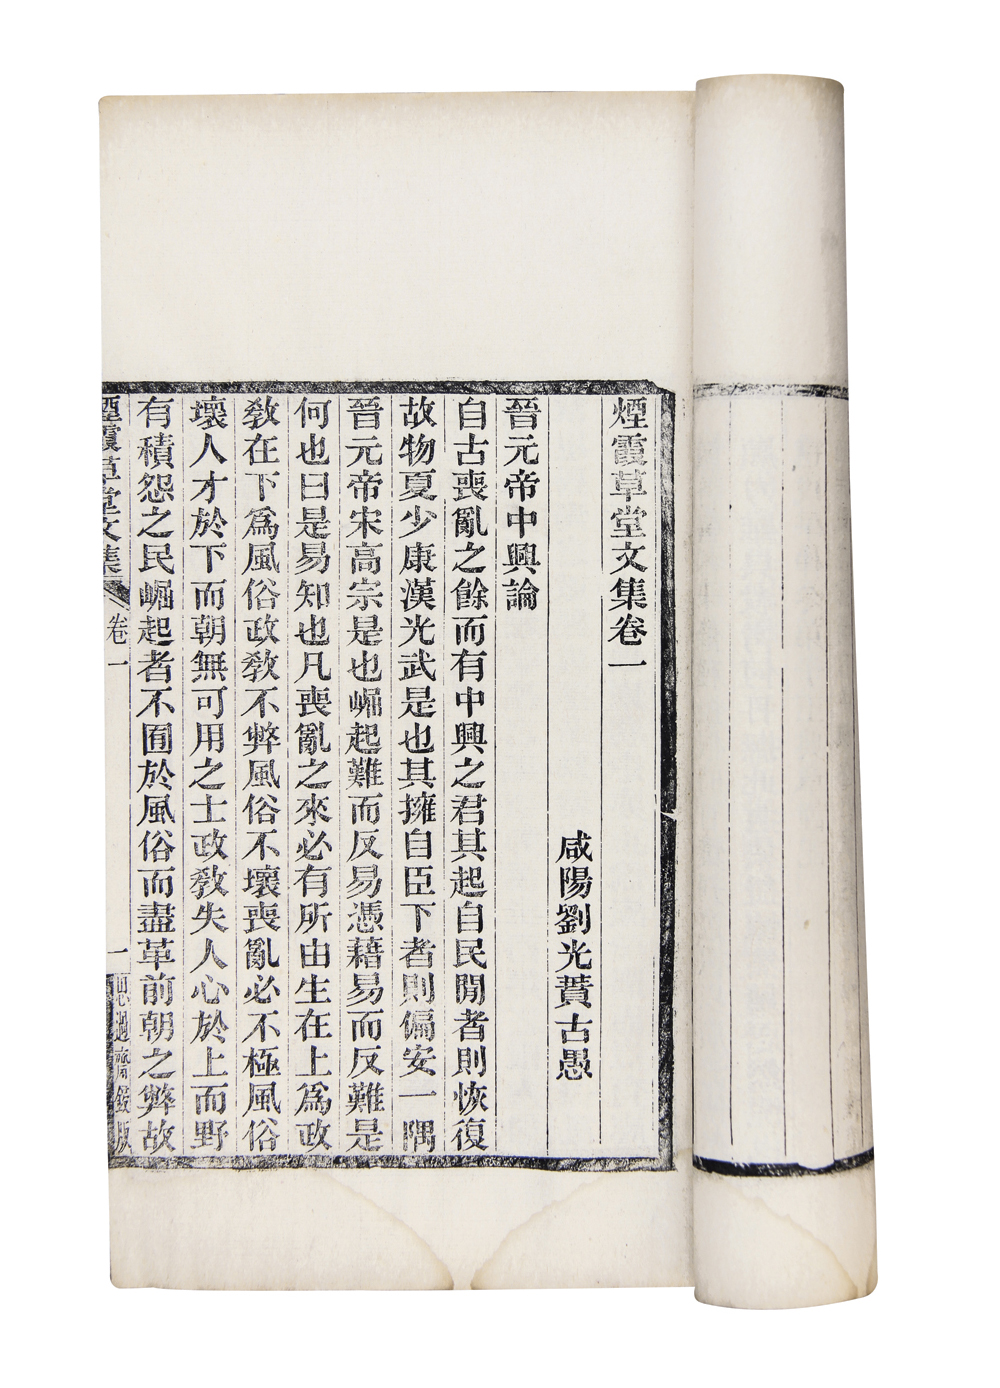 煙霞草堂文集卷一
咸陽劉光蕡古愚
晉元帝中興論
自古喪亂之餘而有中興之君其起自民閒者則恢復
故物夏少康漢光武是也其擁自臣下者則偏安一隅
晉元帝宋高宗是也崛起難而反易憑藉易而反難是
何也曰是易知也凡喪亂之來必有所由生在上爲政
敎在下爲風俗政敎不弊風俗不壞喪亂必不極風俗
壞人才於下而朝無可用之士政敎失人心於上而野
有積怨之民崛起者不囿於風俗而盡革前朝之弊故
煙霞草堂文集 卷一 一 思過齋鋟版